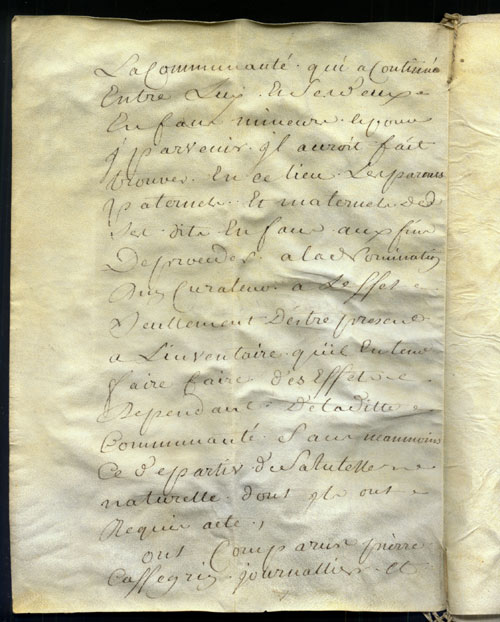 La Communauté qui a Continué
Entre Luy Et Ses deux
Enfans mineurs Et pour
y parvenir jl auroit fait
trouver En ce lieu Les parans
paternels Et maternels des
dits Enfans aux fins
De proceder a la Nomination
Dun Curateur a Leffet
Seullement Destre presens
a Linventaire quil Entens
faire faire des Effets
Dependans De laditte
Communauté Sans neanmoins
Se departir de Sa tutelle
naturelle dont jls ont
Requis acte,
ont Comparus pierre
journallier Et